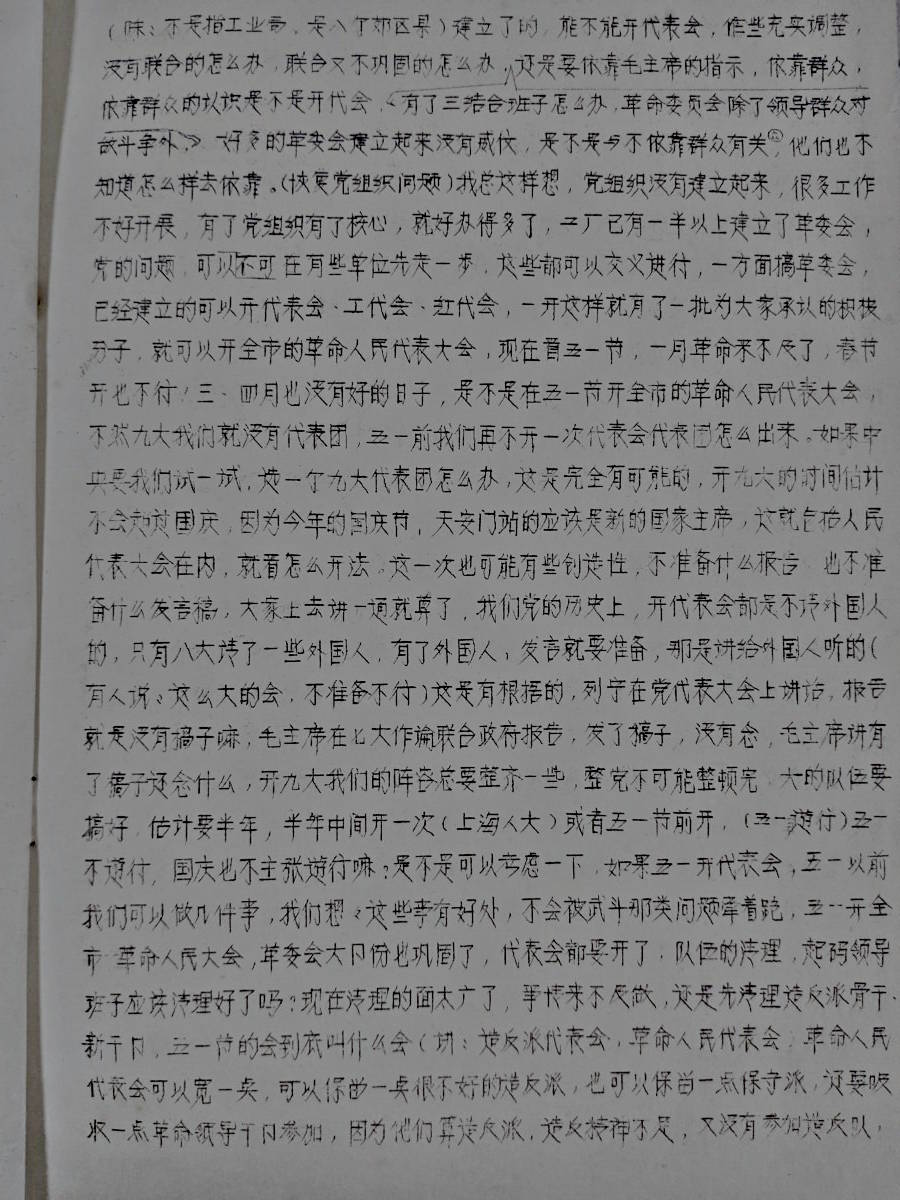 （陈：不是指工业局、是八个郊区县）建立了的，能不能开代表会，作些充实调整，
没有联合的怎么办，联合又不巩固的怎么办，还是要依靠毛主席的指示，依靠群众，
依靠群众的认识是不是开代会，〈有了三结合班子怎么办，革命委员会除了领导群众对
敌斗争外〉好多的革委会建立起来没有威信，是不是与不依靠群众有关，他们也不
知道怎么样去依靠。（恢复党组织问题）我总这样想，党组织没有建立起来，很多工作
不好开展，有了党组织有了核心，就好办得多了，工厂已有一半以上建立了革委会，
党的问题，可以不可在有些单位先走一步，这些都可以交叉进行，一方面搞革委会，
已经建立的可以开代表会、工代会、红代会，一开这样就有了一批为大家承认的积极
分子，就可以开全市的革命人民代表大会，现在看五一节，一月革命来不及了，春节
开也不行！三、四月也没有好的日子，是不是在五一节开全市的革命人民代表大会，
不然九大我们就没有代表团，五一前我们再不开一次代表会代表团怎么出来。如果中
央要我们试一试，选一个九大代表团怎么办，这是完全有可能的，开九大的时间估计
不会超过国庆，因为今年的国庆节，天安门站的应该是新的国家主席，这就包括人民
代表大会在内，就看怎么开法。这一次也可能有些创造性，不准备什么报告 也不准
备什么发言稿，大家上去讲一通就算了，我们党的历史上，开代表会都是不请外国人
的，只有八大请了一些外国人，有了外国人，发言就要准备，那是讲给外国人听的（
有人说：这么大的会，不准备不行）这是有根据的，列宁在党代表大会上讲话，报告
就是没有搞子嘛，毛主席在七大作论联合政府报告，发了搞子，没有念，毛主席讲有
了搞子还念什么，开九大我们的阵容总要整齐一些，整党不可能整顿完 大的队伍要
搞好，估计要半年，半年中间开一次（上海人大）或者五一节前开，（五一游行）五一
不游行，国庆也不主张游行嘛？是不是可以考虑一下，如果五一开代表会，五一以前
我们可以做几件事，我们想：这些事有好处，不会被武斗那类问题牵着跑，五一开全
市 革命人民大会，革委会大部份也巩固了，代表会都要开了，队伍的清理，起码领导
班子应该清理好了吗？现在清理的面太广了，事情来不及做，还是先清理造反派骨干、
新干部，五一节的会到底叫什么会（讲：造反派代表会，革命人民代表会，革命人民
代表会可以宽一些，可以保留一些很不好的造反派，也可以保留一点保守派，还要吸
收一点革命领导干部参加，因为他们算造反派，造反精神不足，又没有参加造反队，